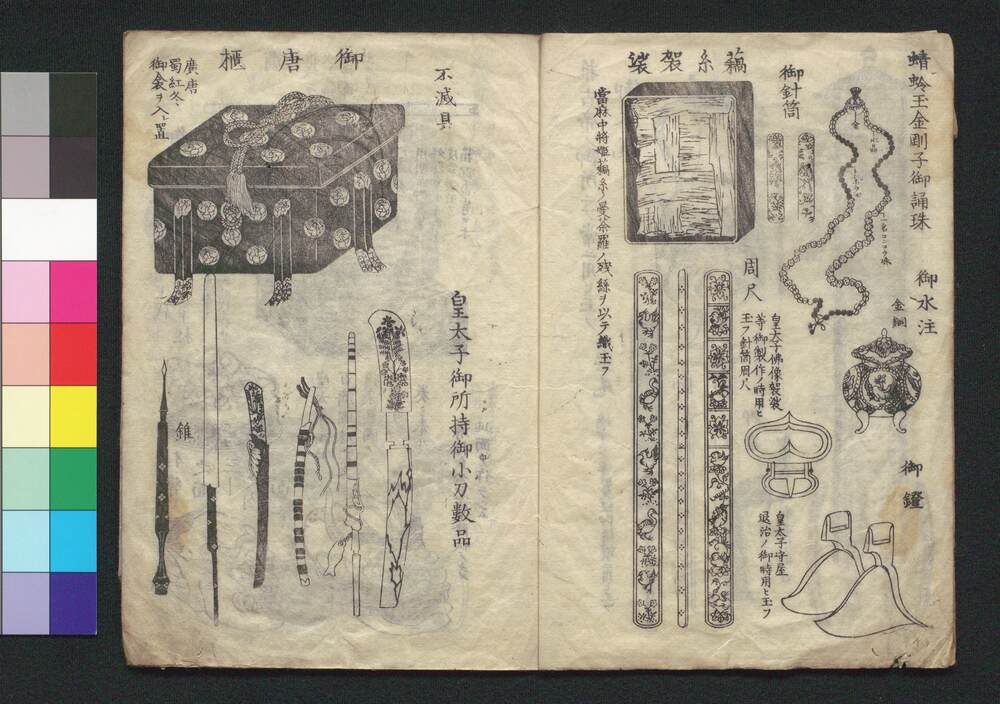 蜻蛉玉金剛子御誦珠
御水注
金銅
御鐙
御針筒
周尺
皇太子佛像袈裟
等御製作ノ時用ヒ
玉フ針筒周尺
皇太子守屋
退治ノ御時用ヒ玉フ
藕糸袈裟
當麻中将姫藕糸ノ曼荼羅ノ残絲ヲ以テ織玉フ
不滅具
皇太子御所持御小刀數品
御唐櫃
廣唐
蜀紅冬
御衾ヲ入置
錐